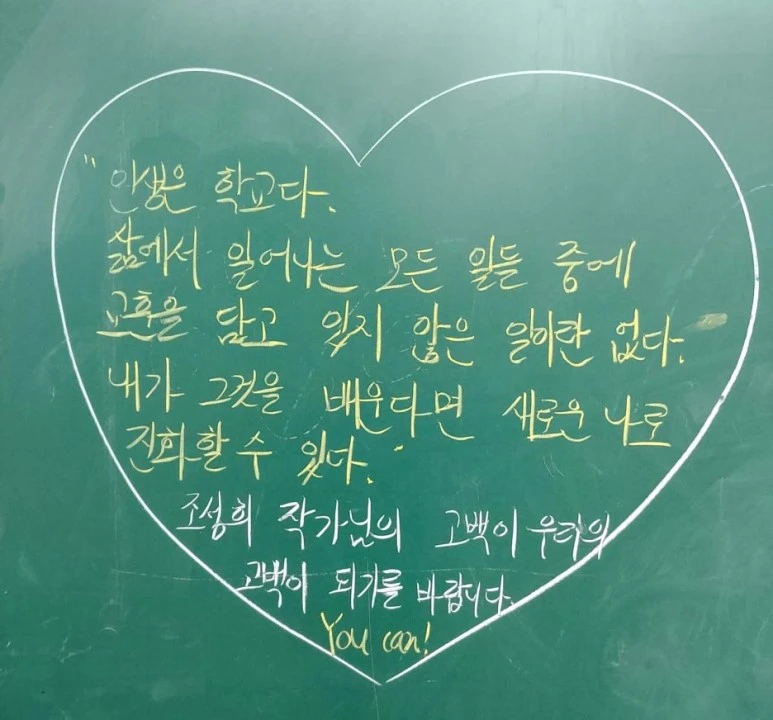 "인생은 학교다.
삶에서 일어나는 모든 일들 중에
교훈을 담고 있지 않은 일이란 없다.
내가 그것을 배운다면 새로운 나로
진화할 수 있다."
조성희 작가님의 고백이 우리의
고백이 되기를 바랍니다.
You can!